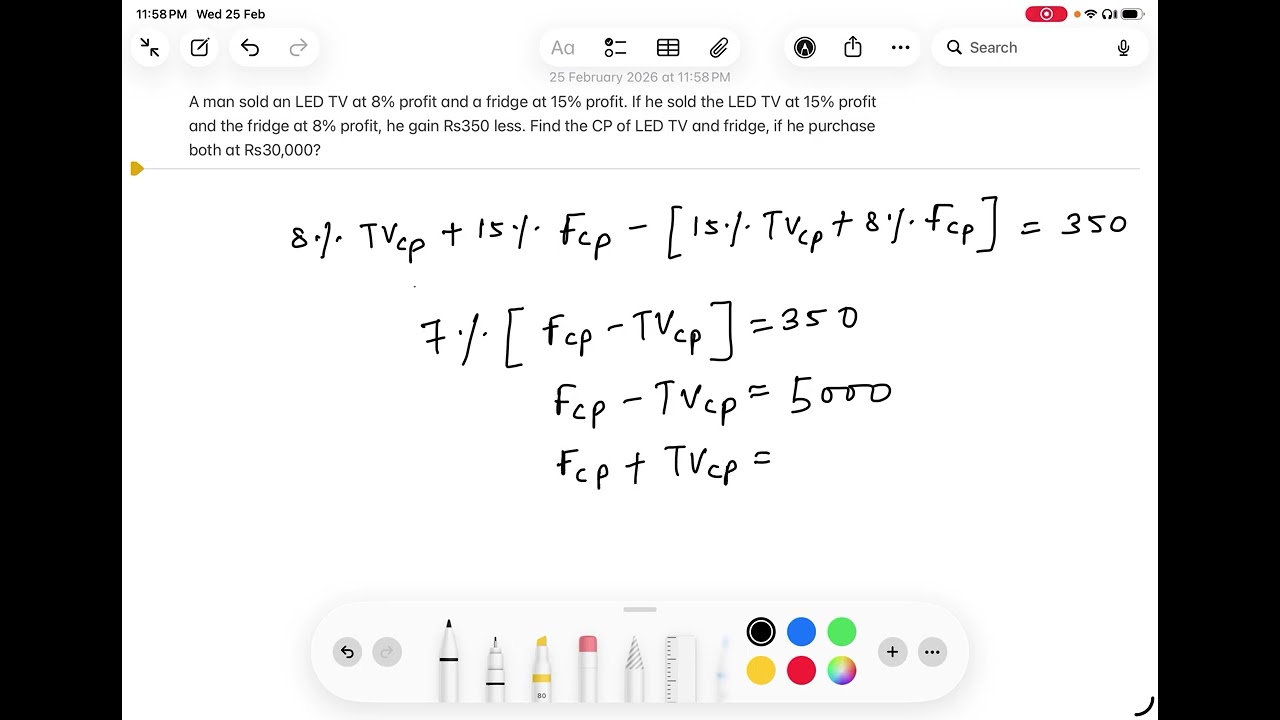 11:58 PM Wed 25 Feb
Aa
Search
25 February 2026 at 11:58 PM
A man sold an LED TV at 8% profit and a fridge at 15% profit. If he sold the LED TV at 15% profit
and the fridge at 8% profit, he gain Rs350 less. Find the CP of LED TV and fridge, if he purchase
both at Rs30,000?
8% TVcp + 15% Fcp - [15% TVcp + 8% Fcp] = 350
7% [Fcp - TVcp] = 350
Fcp - TVcp = 5000
Fcp + TVcp =
80